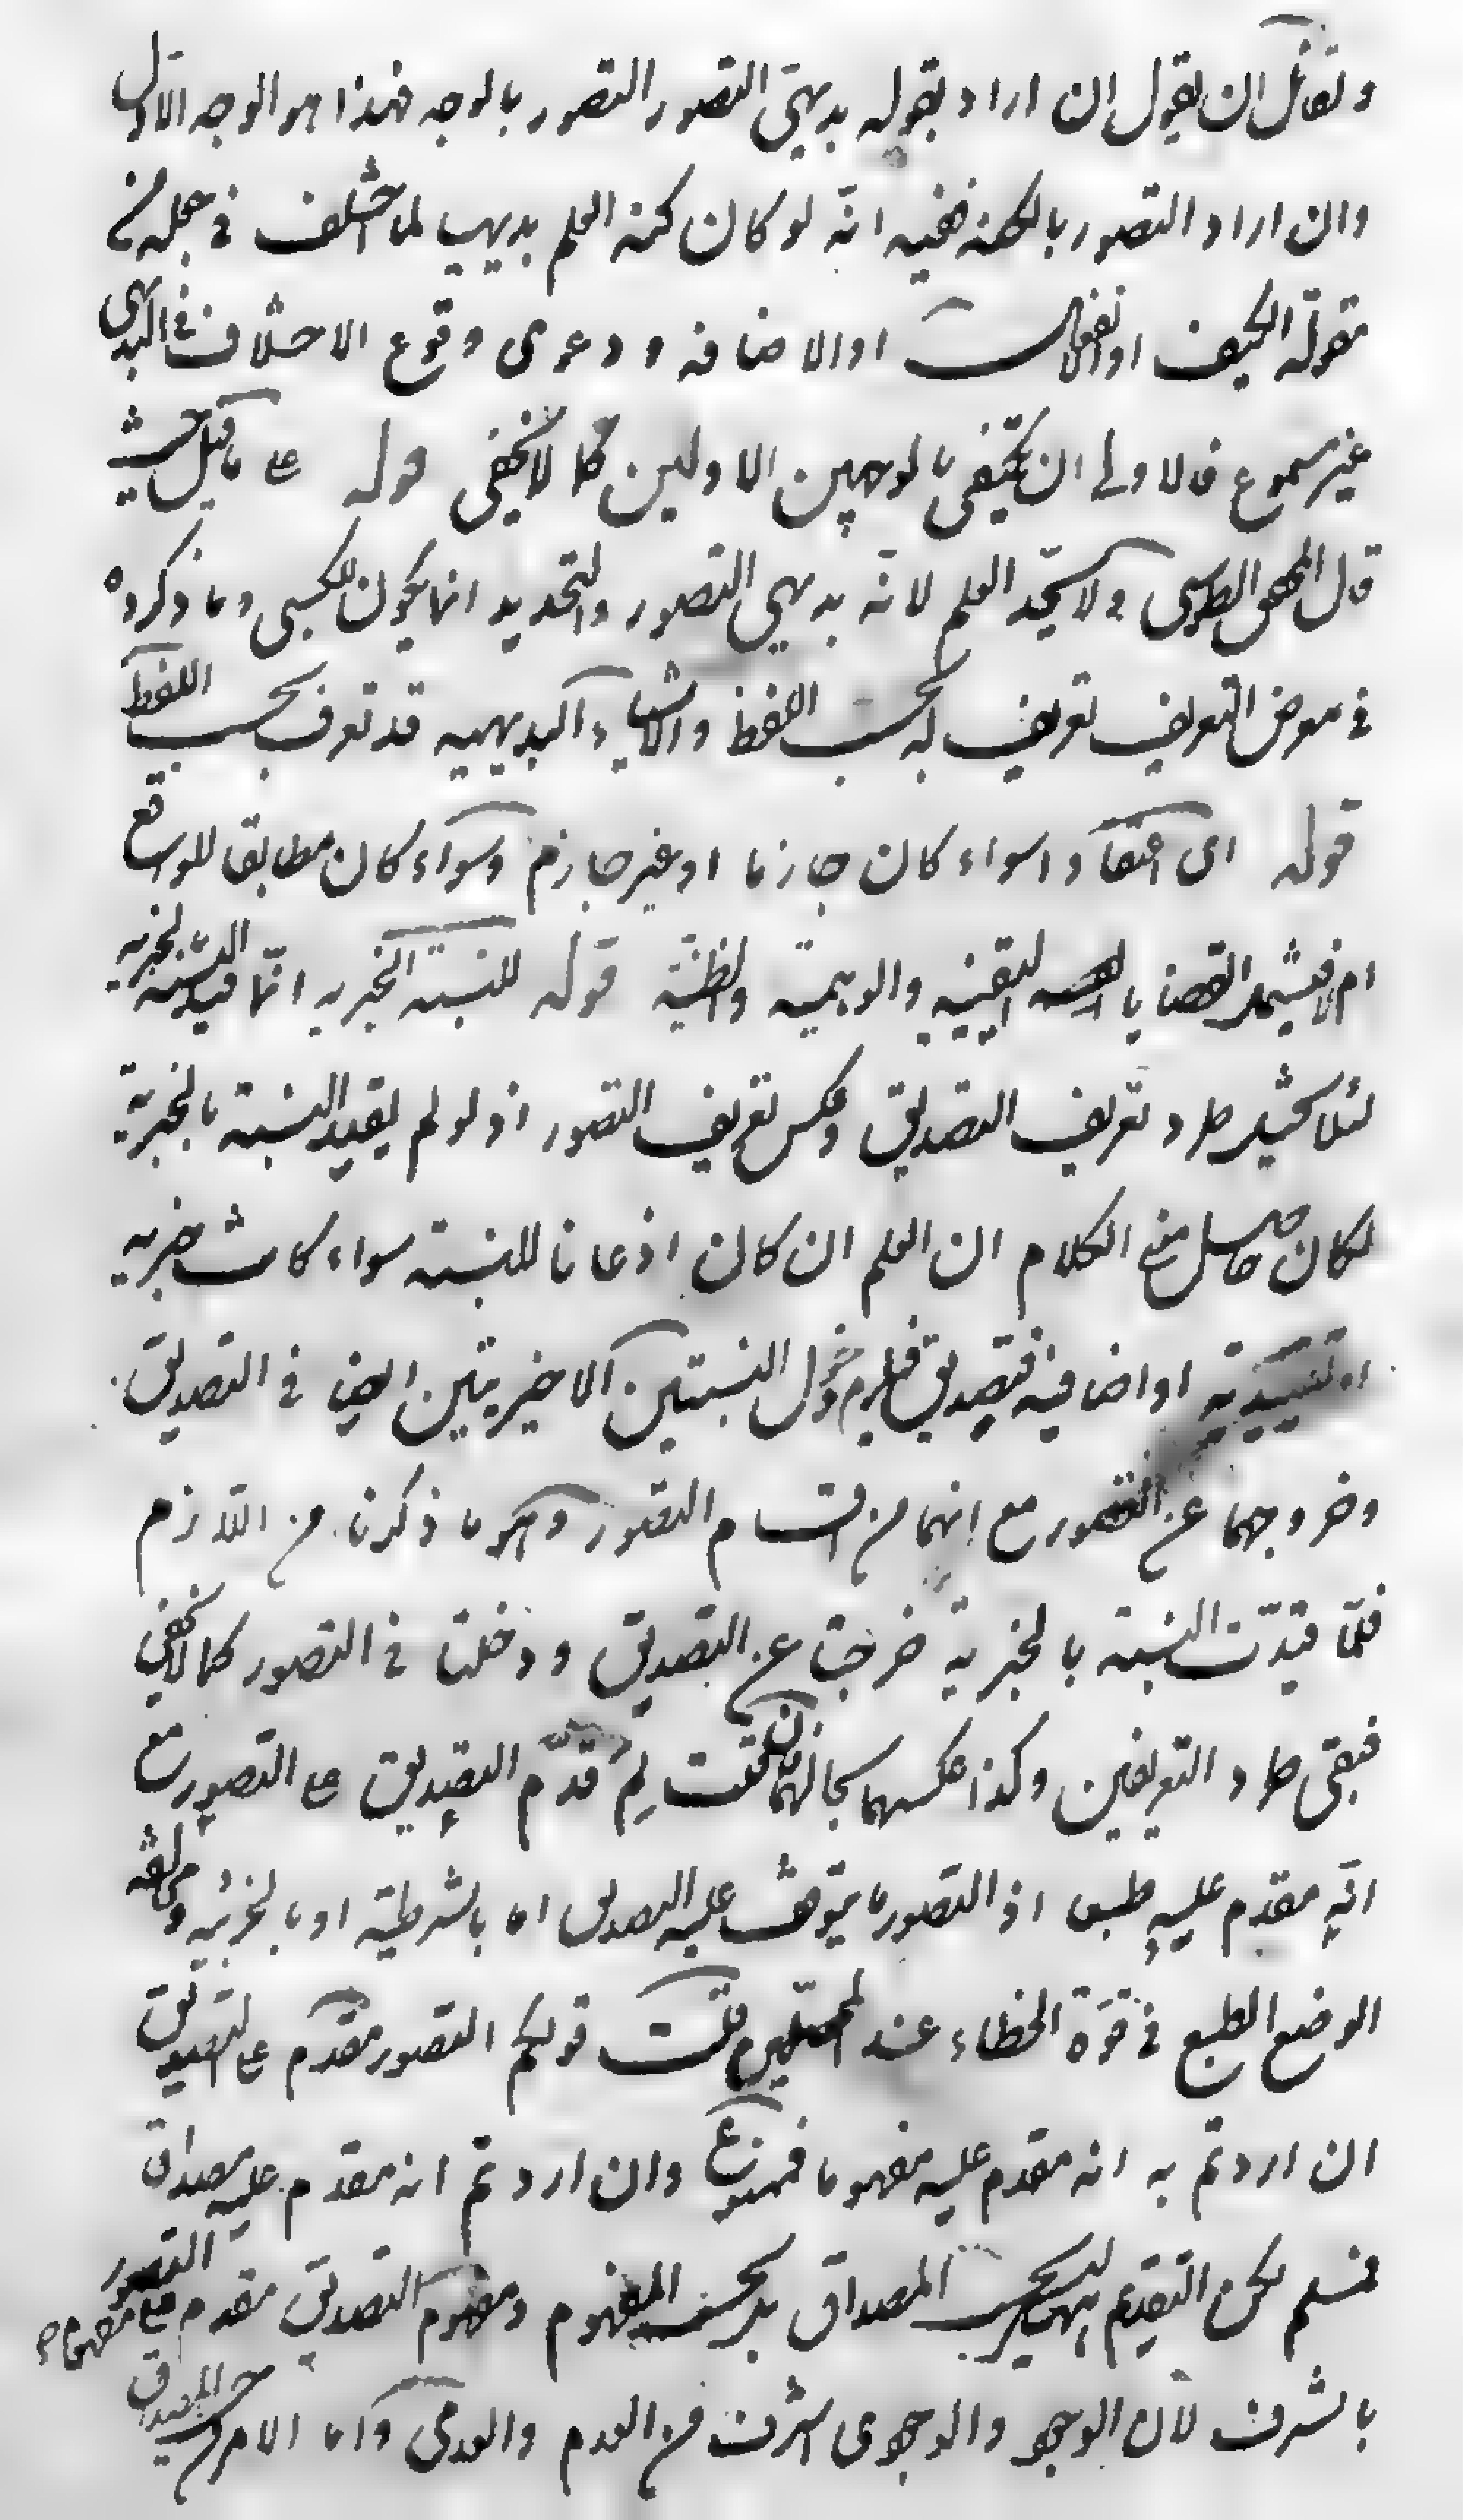 ولقائل ان يقول ان اراد بقوله بديهي التصور التصور بالوجه فهذا هو الوجه الاول
وان اراد التصور بالكنه ففيه انه لو كان كنه العلم بديهيا لما اختلف في جعله من
مقولة الكيف او الانفعال او الاضافة ودعوى وقوع الاختلاف في البديهي
غير مسموع فالاولى ان يكتفى بالوجهين الاولين كما لا يخفى قوله على ما قيل حيث
قال المحقق الطوسي ولا يحد العلم لانه بديهي التصور والتحديد انما يكون للكسبي وما ذكروه
في معرض التعريف تعريف له بحسب اللفظ والاشياء البديهية قد تعرف بحسب اللفظ
قوله اى اعتقادا سواء كان جازما او غير جازم وسواء كان مطابقا للواقع
ام لا فيشمل القضايا اليقينية والوهمية والظنية قوله للنسبة الخبرية انما قيد النسبة بالخبرية
لئلا يختل طرد تعريف التصديق وعكس تعريف التصور اذ لو لم يقيد النسبة بالخبرية
لكان حاصل الكلام ان العلم ان كان اذعانا للنسبة سواء كانت خبرية
او تقييدية او اضافية فتصديق فيلزم دخول النسبتين الاخيرتين ايضا في التصديق
وخروجهما عن التصور مع انهما من اقسام التصور وهو ما ذكرنا من اللازم
فلما قيدت النسبة بالخبرية خرجتا عن التصديق ودخلتا في التصور كما لا يخفى
فبقى طرد التعريفين وكذا عكسهما بحالهما فان قلت لم قدم التصديق على التصور مع
انه مقدم عليه طبعا اذ التصور ما يتوقف عليه التصديق اما بالشرطية او بالجزئية ومخالفة
الوضع الطبع في قوة الخطاء عند المحصلين قلت قولكم التصور مقدم على التصديق
ان اردتم به انه مقدم عليه مفهوما فممنوع وان اردتم انه مقدم عليه مصداقا
فمسلم لكن التقديم ههنا ليس بحسب المصداق بل بحسب المفهوم ومفهوم التصديق مقدم على مفهوم التصور
بالشرف لان الوجود والوجودى اشرف من العدم والعدمى واما الامر بحسب المصداق